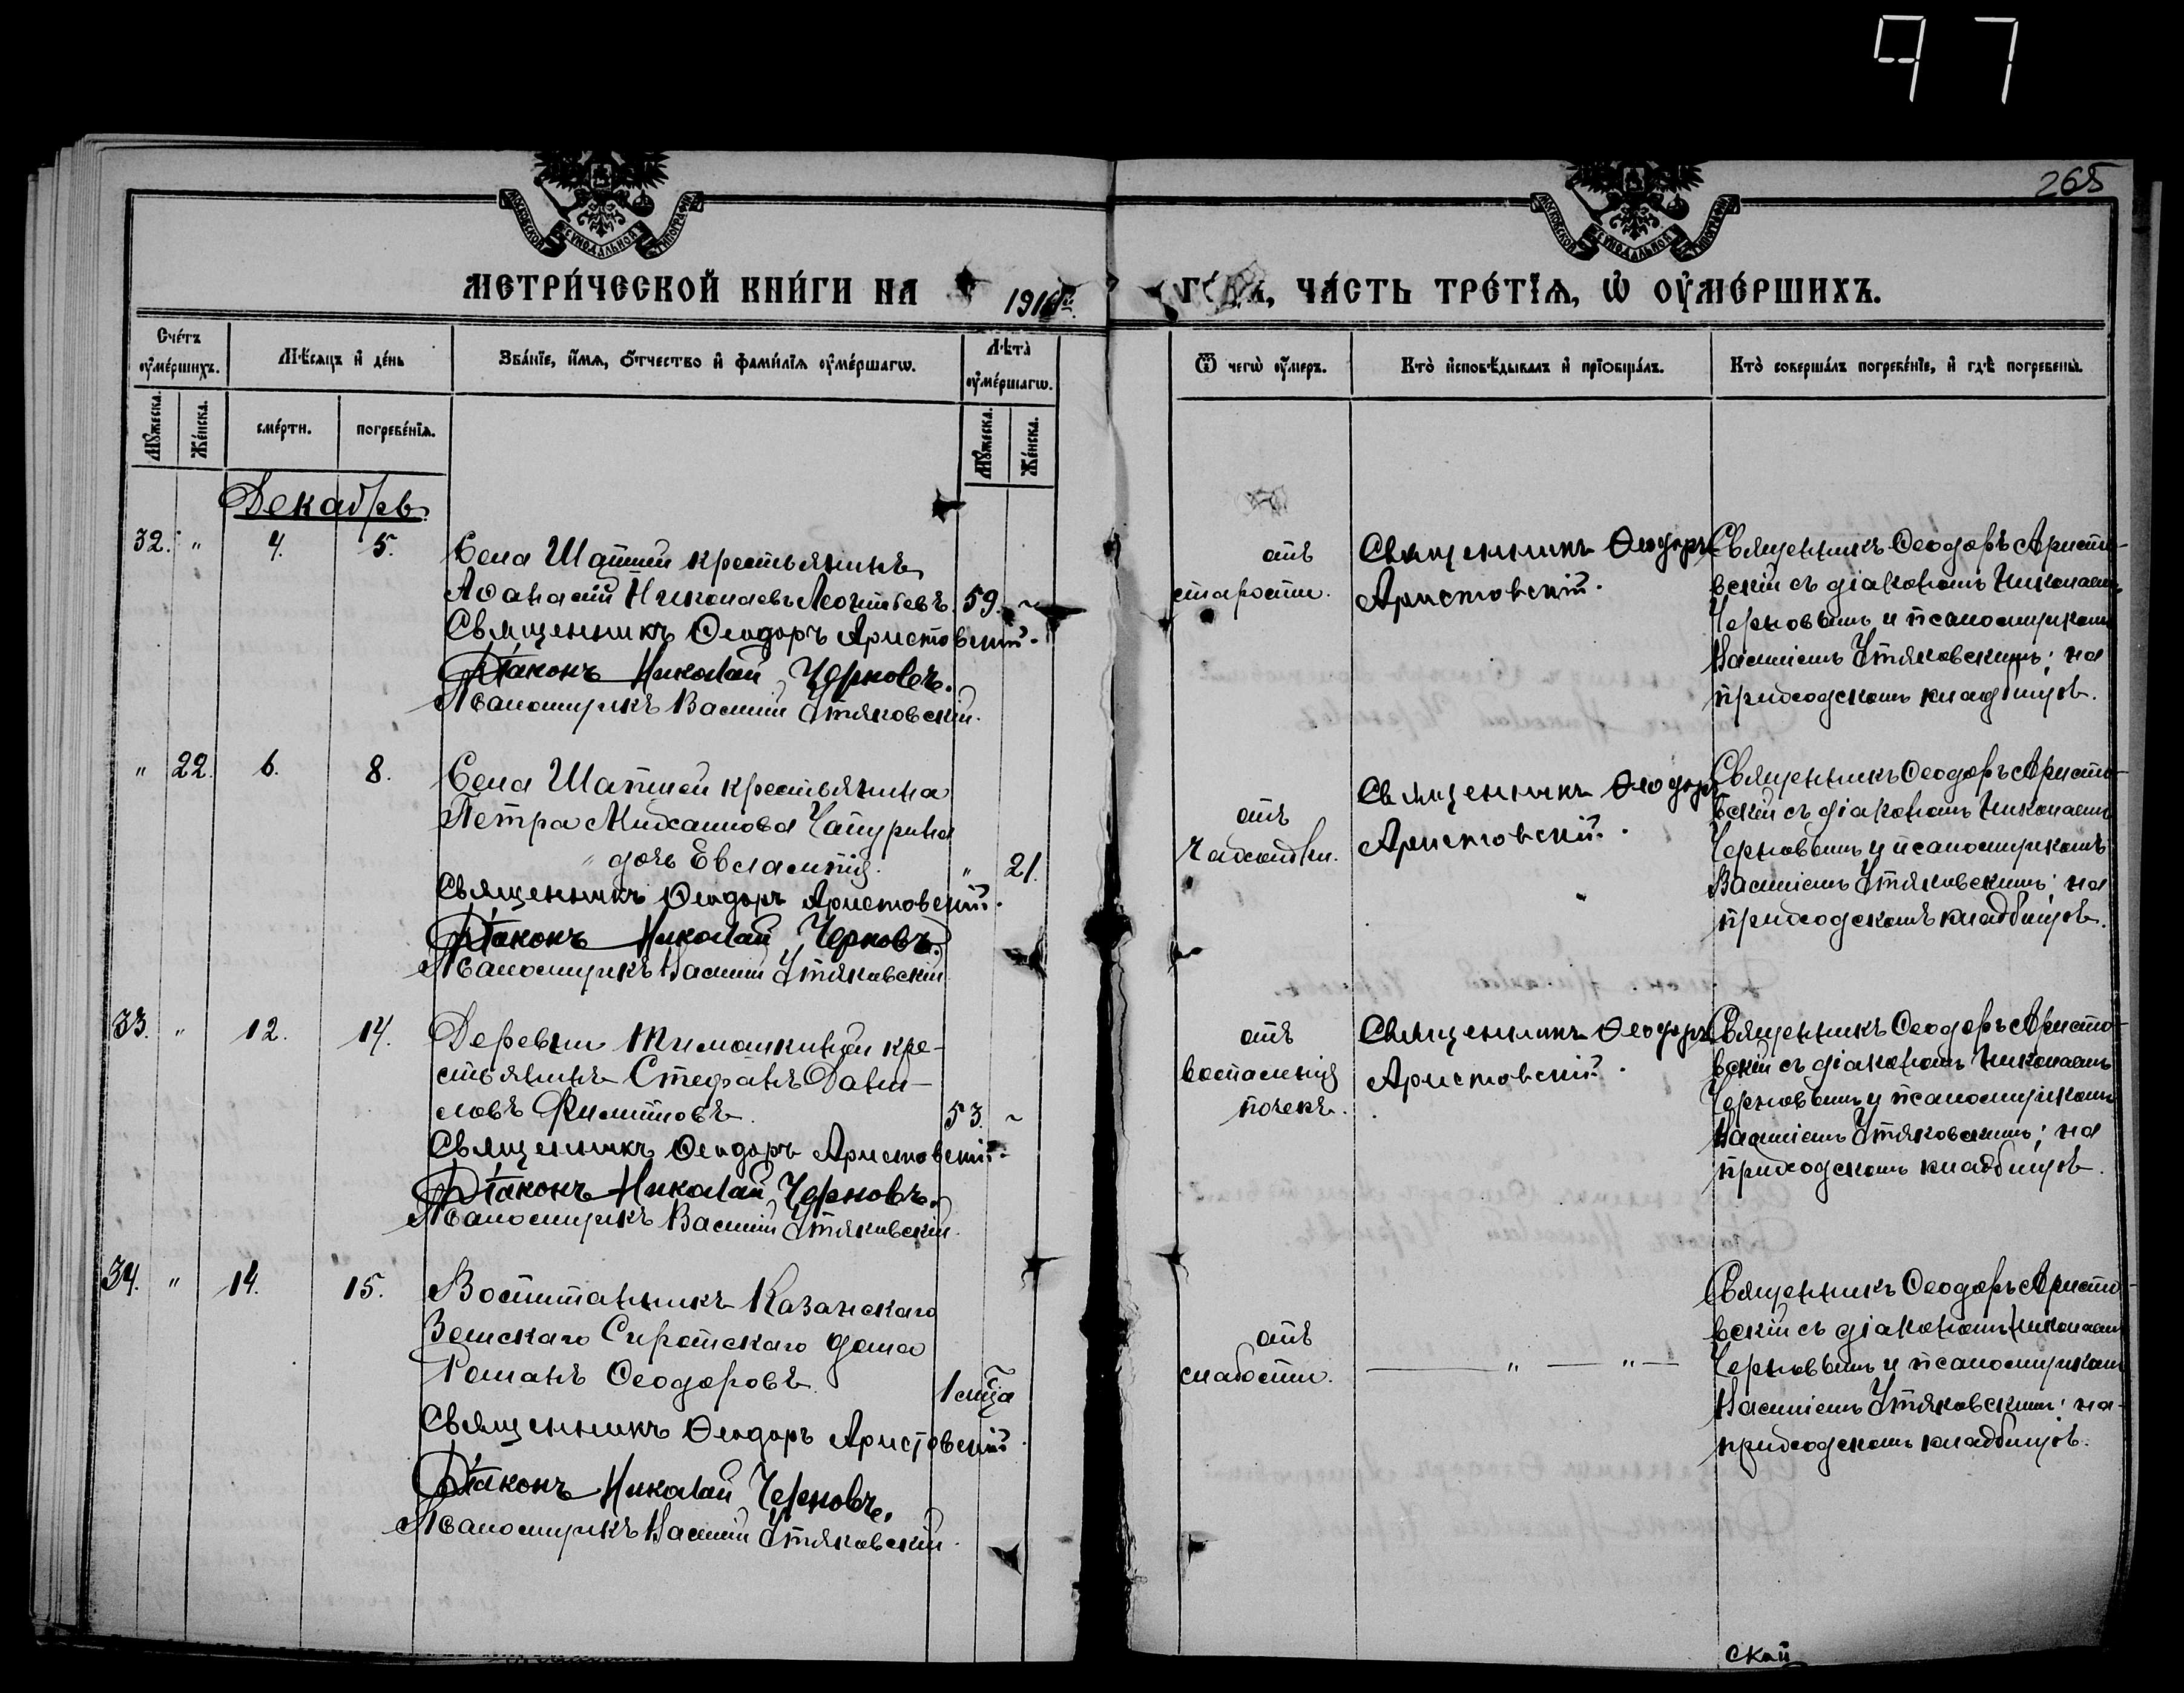 97
265
МОСКОВСКОЙ СѴНОДАЛЬНОЙ ТИПОГРАФІИ
МОСКОВСКОЙ СѴНОДАЛЬНОЙ ТИПОГРАФІИ
МЕТРИ́ЧЕСКОЙ КНИ́ГИ НА 1916 ГО́ДЪ, ЧА́СТЬ ТРЕ́ТІѦ, Ѡ҆ ОУ҆МЕ́РШИХЪ.
Сче́тъ оу҆ме́ршихъ.
Мѣ́сяцъ и҆ де́нь
Зва́нїе, и҆́мѧ, ѻ҆́тчество и҆ фами́лїѧ оу҆ме́ршагѡ.
Лѣ́та̀ оу҆ме́ршагѡ.
Ѿ чегѡ̀ оу҆́меръ.
Кто̀ и҆сповѣ́дывалъ и҆ прїѡбща́лъ.
Кто̀ соверша́лъ погребе́нїе, и҆ гдѣ̀ погребены̀.
Мꙋ́жеска.
Же́нска.
сме́рти.
погребе́нїѧ.
Мꙋ́жеска.
Же́нска.
Декабрь.
32. " 4. 5. Села Шапшей крестьянинъ
Аѳанасій Николаевъ Леонтьевъ. 59. ~
Священникъ Ѳеодоръ Аристовскій.
Діаконъ Николай Черновъ.
Псаломщикъ Василій Утяковскій.
отъ
старости.
Священникъ Ѳеодоръ
Аристовскій.
Священникъ Ѳеодоръ Аристо-
вскій съ діакономъ Николаемъ
Черновымъ и псаломщикомъ
Василіемъ Утяковскимъ; на
приходскомъ кладбищѣ.
" 22. 6. 8. Села Шапшей крестьянина
Петра Михаилова Чапурина
дочь Евлампія. " 21.
Священникъ Ѳеодоръ Аристовскій.
Діаконъ Николай Черновъ.
Псаломщикъ Василій Утяковскій.
отъ
чахотки.
Священникъ Ѳеодоръ
Аристовскій.
Священникъ Ѳеодоръ Аристо-
вскій съ діакономъ Николаемъ
Черновымъ и псаломщикомъ
Василіемъ Утяковскимъ; на
приходскомъ кладбищѣ.
33. " 12. 14. Деревни Тимошкиной кре-
стьянинъ Стефанъ Дани-
ловъ Филипповъ. 53. ~
Священникъ Ѳеодоръ Аристовскій.
Діаконъ Николай Черновъ.
Псаломщикъ Василій Утяковскій.
отъ
воспаленія
почекъ.
Священникъ Ѳеодоръ
Аристовскій.
Священникъ Ѳеодоръ Аристо-
вскій съ діакономъ Николаемъ
Черновымъ и псаломщикомъ
Василіемъ Утяковскимъ; на
приходскомъ кладбищѣ.
34. " 14. 15. Воспитанникъ Казанскаго
Земскаго Сиротскаго дома
Романъ Ѳеодоровъ.
Священникъ Ѳеодоръ Аристовскій.
Діаконъ Николай Черновъ.
Псаломщикъ Василій Утяковскій.
отъ
слабости.
— " — " —
Священникъ Ѳеодоръ Аристо-
вскій съ діакономъ Николаемъ
Черновымъ и псаломщикомъ
Василіемъ Утяковскимъ; на
приходскомъ кладбищѣ.